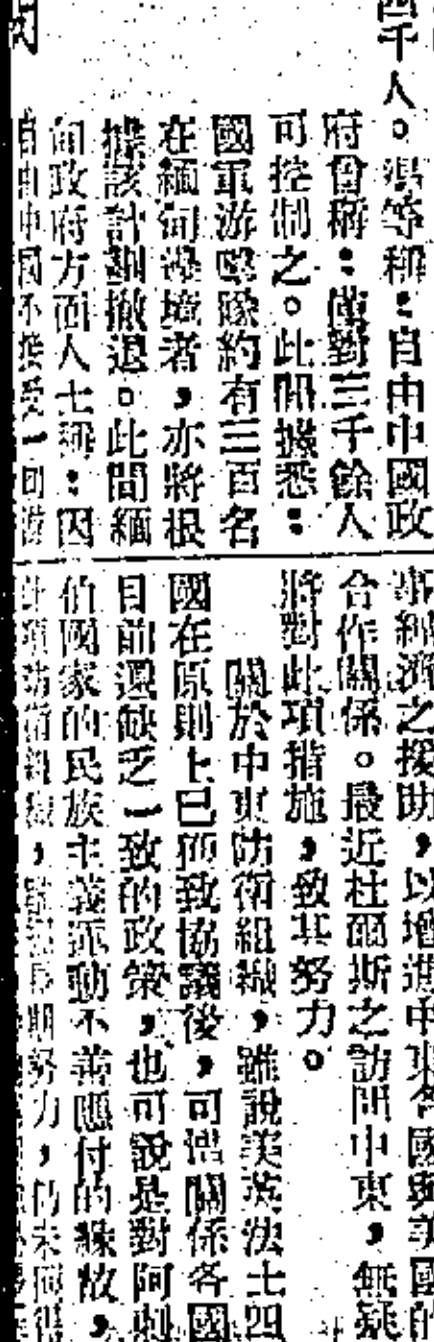 四千人。渠等稱：自由中國政
府曾稱：僅對三千餘人
可控制之。此間據悉：
國軍游擊隊約有三百名
在緬甸邊境者，亦將根
據該計劃撤退。此間緬
甸政府方面人士稱：因
自由中國不接受一切游
經濟之援助，以增進中東各國與美國的
合作關係。最近杜爾斯之訪問中東，無疑
將對此項措施，致其努力。
關於中東防衛組織，雖說美英法土四
國在原則上已獲致協議後，可惜關係各國
目前還缺乏一致的政策，也可說是對阿剌
伯國家的民族主義運動不善應付的緣故，
此項防衛組織，雖經長期努力，仍未獲得